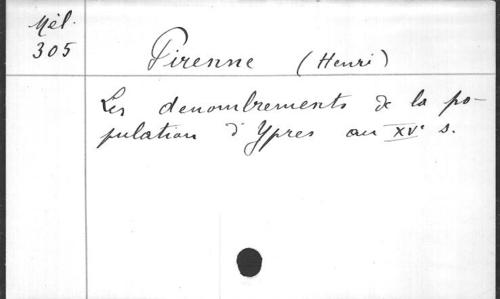 Mél.
305
Pirenne (Henri)
Les denombrements de la po-
pulation d'Ypres au XVe s.